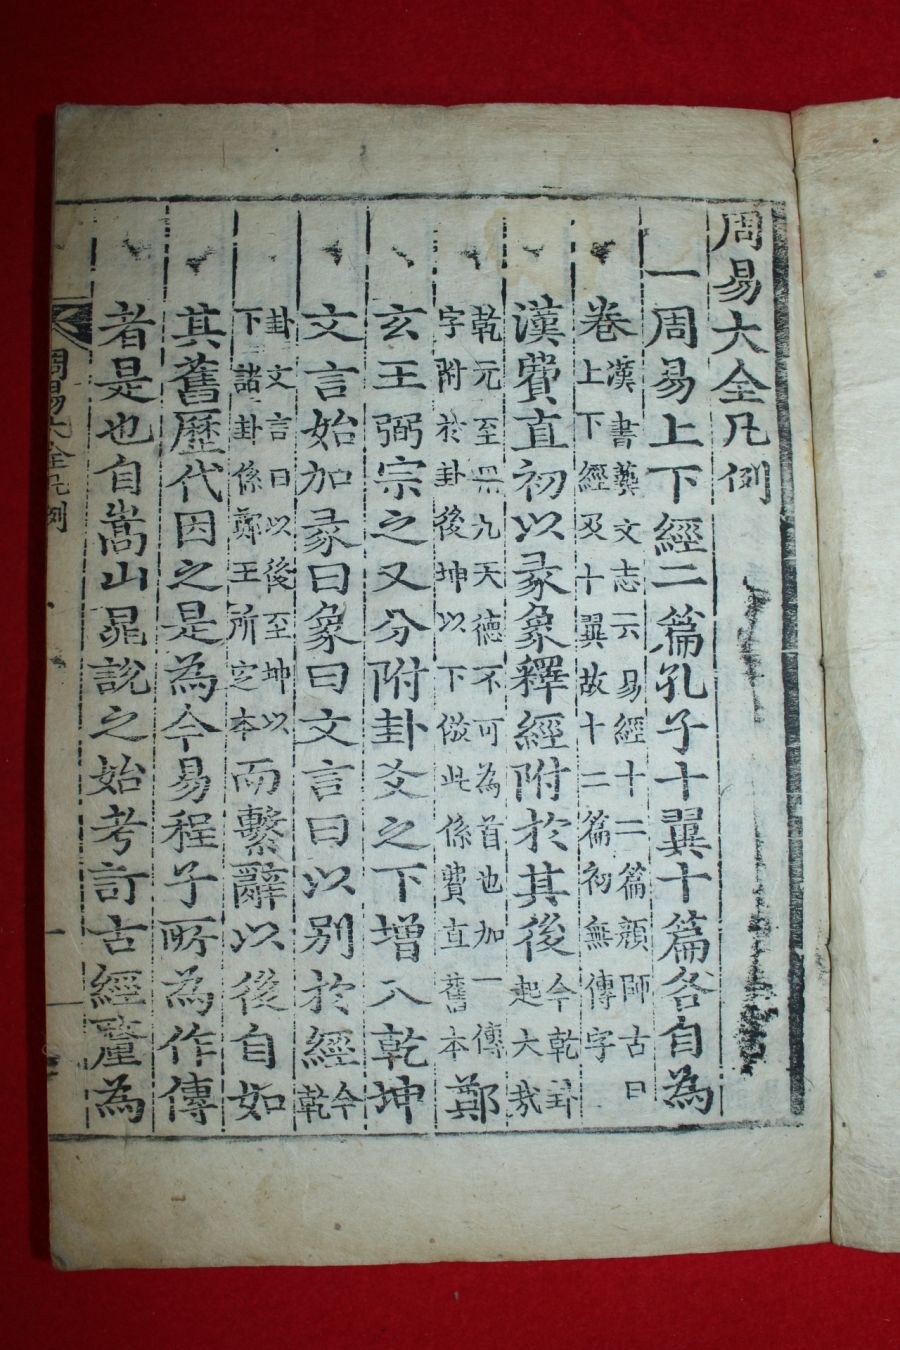 周易大全凡例
一周易上下經二篇孔子十翼十篇各自為
卷漢書藝文志云易經十二篇顔師古曰上下經及十翼故十二篇初無傳字
漢費直初以彖象釋經附於其後今乾卦起大哉
乾元至用九天德不可為首也加一傳字附於卦後坤以下倣此係費直舊本鄭
玄王弼宗之又分附卦爻之下增入乾坤
文言始加彖曰象曰文言曰以別於經今乾
卦文言曰以後至坤以下諸卦係鄭王所定本而繫辭以後自如
其舊歷代因之是為今易程子所為作傳
者是也自嵩山晁說之始考訂古經釐為
周易大全凡例 一